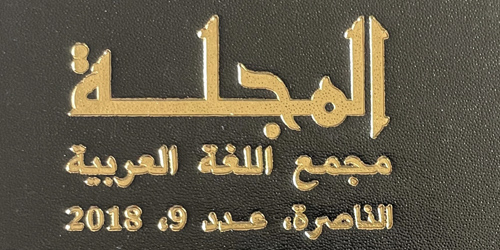 المجلة
مجمع اللغة العربية
الناصرة، عدد 9، 2018